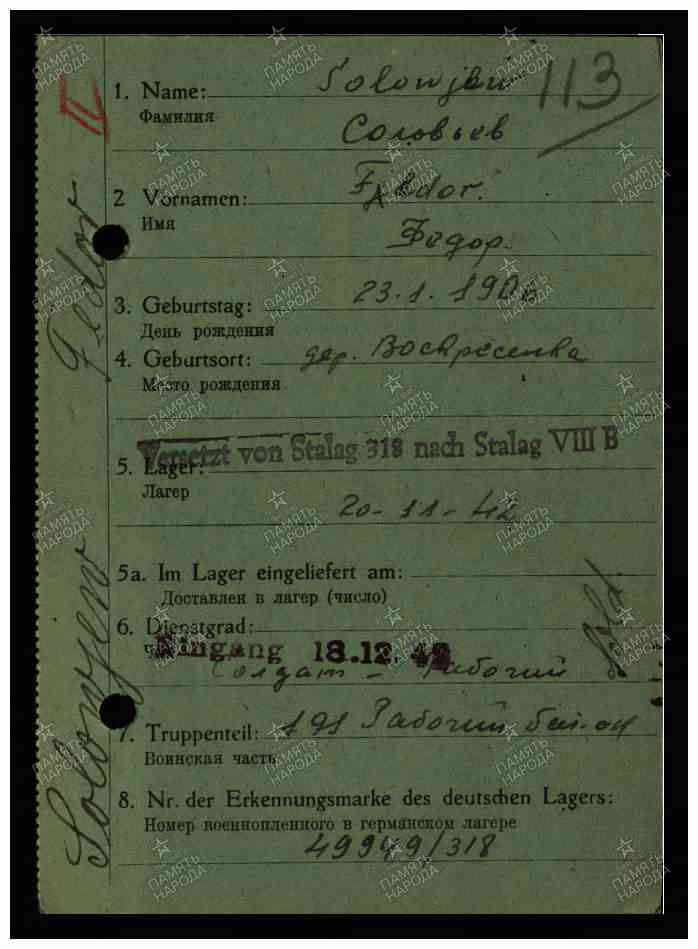 II
113
1. Name: Solowjew
Фамилия
Соловьев
2 Vornamen: Fedor.
Имя
Федор.
3. Geburtstag: 23.1.190
День рождения
4. Geburtsort: дер. Воскресенка
Место рождения
Versetzt von Stalag 318 nach Stalag VIII B
5. Lager:
Лагер
20-11-42
5a. Im Lager eingeliefert am:
Доставлен в лагер (число)
6. Dienstgrad:
Eingang 18.12.42
Солдат - Рабочий
Sold.
7. Truppenteil: 191 Рабочий бат-он
Воинская часть
8. Nr. der Erkennungsmarke des deutschen Lagers:
Номер военнопленного в германском лагере
49949/318
Solowjew Fedor
ПАМЯТЬ
НАРОДА